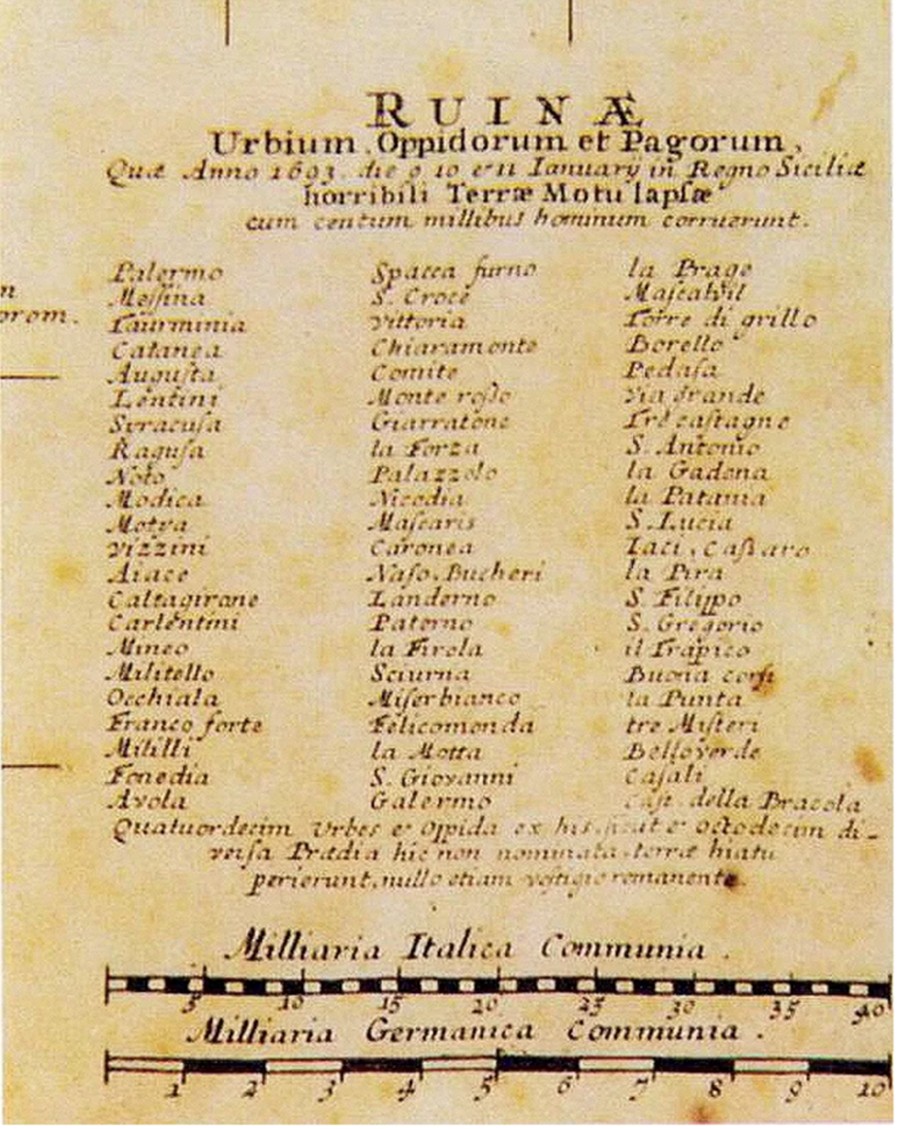 RUINÆ
Urbium Oppidorum et Pagorum,
Quæ Anno 1693. die 9 10 et 11 Ianuarÿ in Regno Siciliæ
horribili Terræ Motu lapſæ
cum centum millibus hominum corruerunt.
n
orom.
Palermo
Meſſina
Taurminia
Catanea
Auguſta
Lentini
Syracuſa
Raguſa
Noto
Modica
Motva
Vizzini
Aiace
Caltagirone
Carlentini
Mineo
Militello
Occhiala
Franco forte
Mililli
Fenedia
Avola
Spacca furno
S. Croce
Vittoria
Chiaramonte
Comite
Monte roſſo
Giarratone
la Forza
Palazzolo
Nicodia
Maſcaris
Caronea
Naſo. Bucheri
Landerno
Paterno
la Firola
Sciurna
Miſerbianco
Felicomonda
la Motta
S. Giovanni
Galermo
la Prage
Torre di grillo
Borello
Pedaſa
Via grande
Tre caſtagne
S. Antonio
la Gadena
la Patania
S. Lucia
Iaci. Caſtaro
la Pira
S. Filippo
S. Gregorio
il Trapico
Buona
la Punta
tre Miſteri
Belloverde
Caſali
della Bracola
Quatuordecim Urbes et Oppida ex his ſicut et octodecim di-
verſa Prædia hic non nominata terræ hiatu
perierunt, nullo etiam veſtigio remanente.
Milliaria Italica Communia.
5 10 15 20 25 30 35 40
Milliaria Germanica Communia.
1 2 3 4 5 6 7 8 9 10